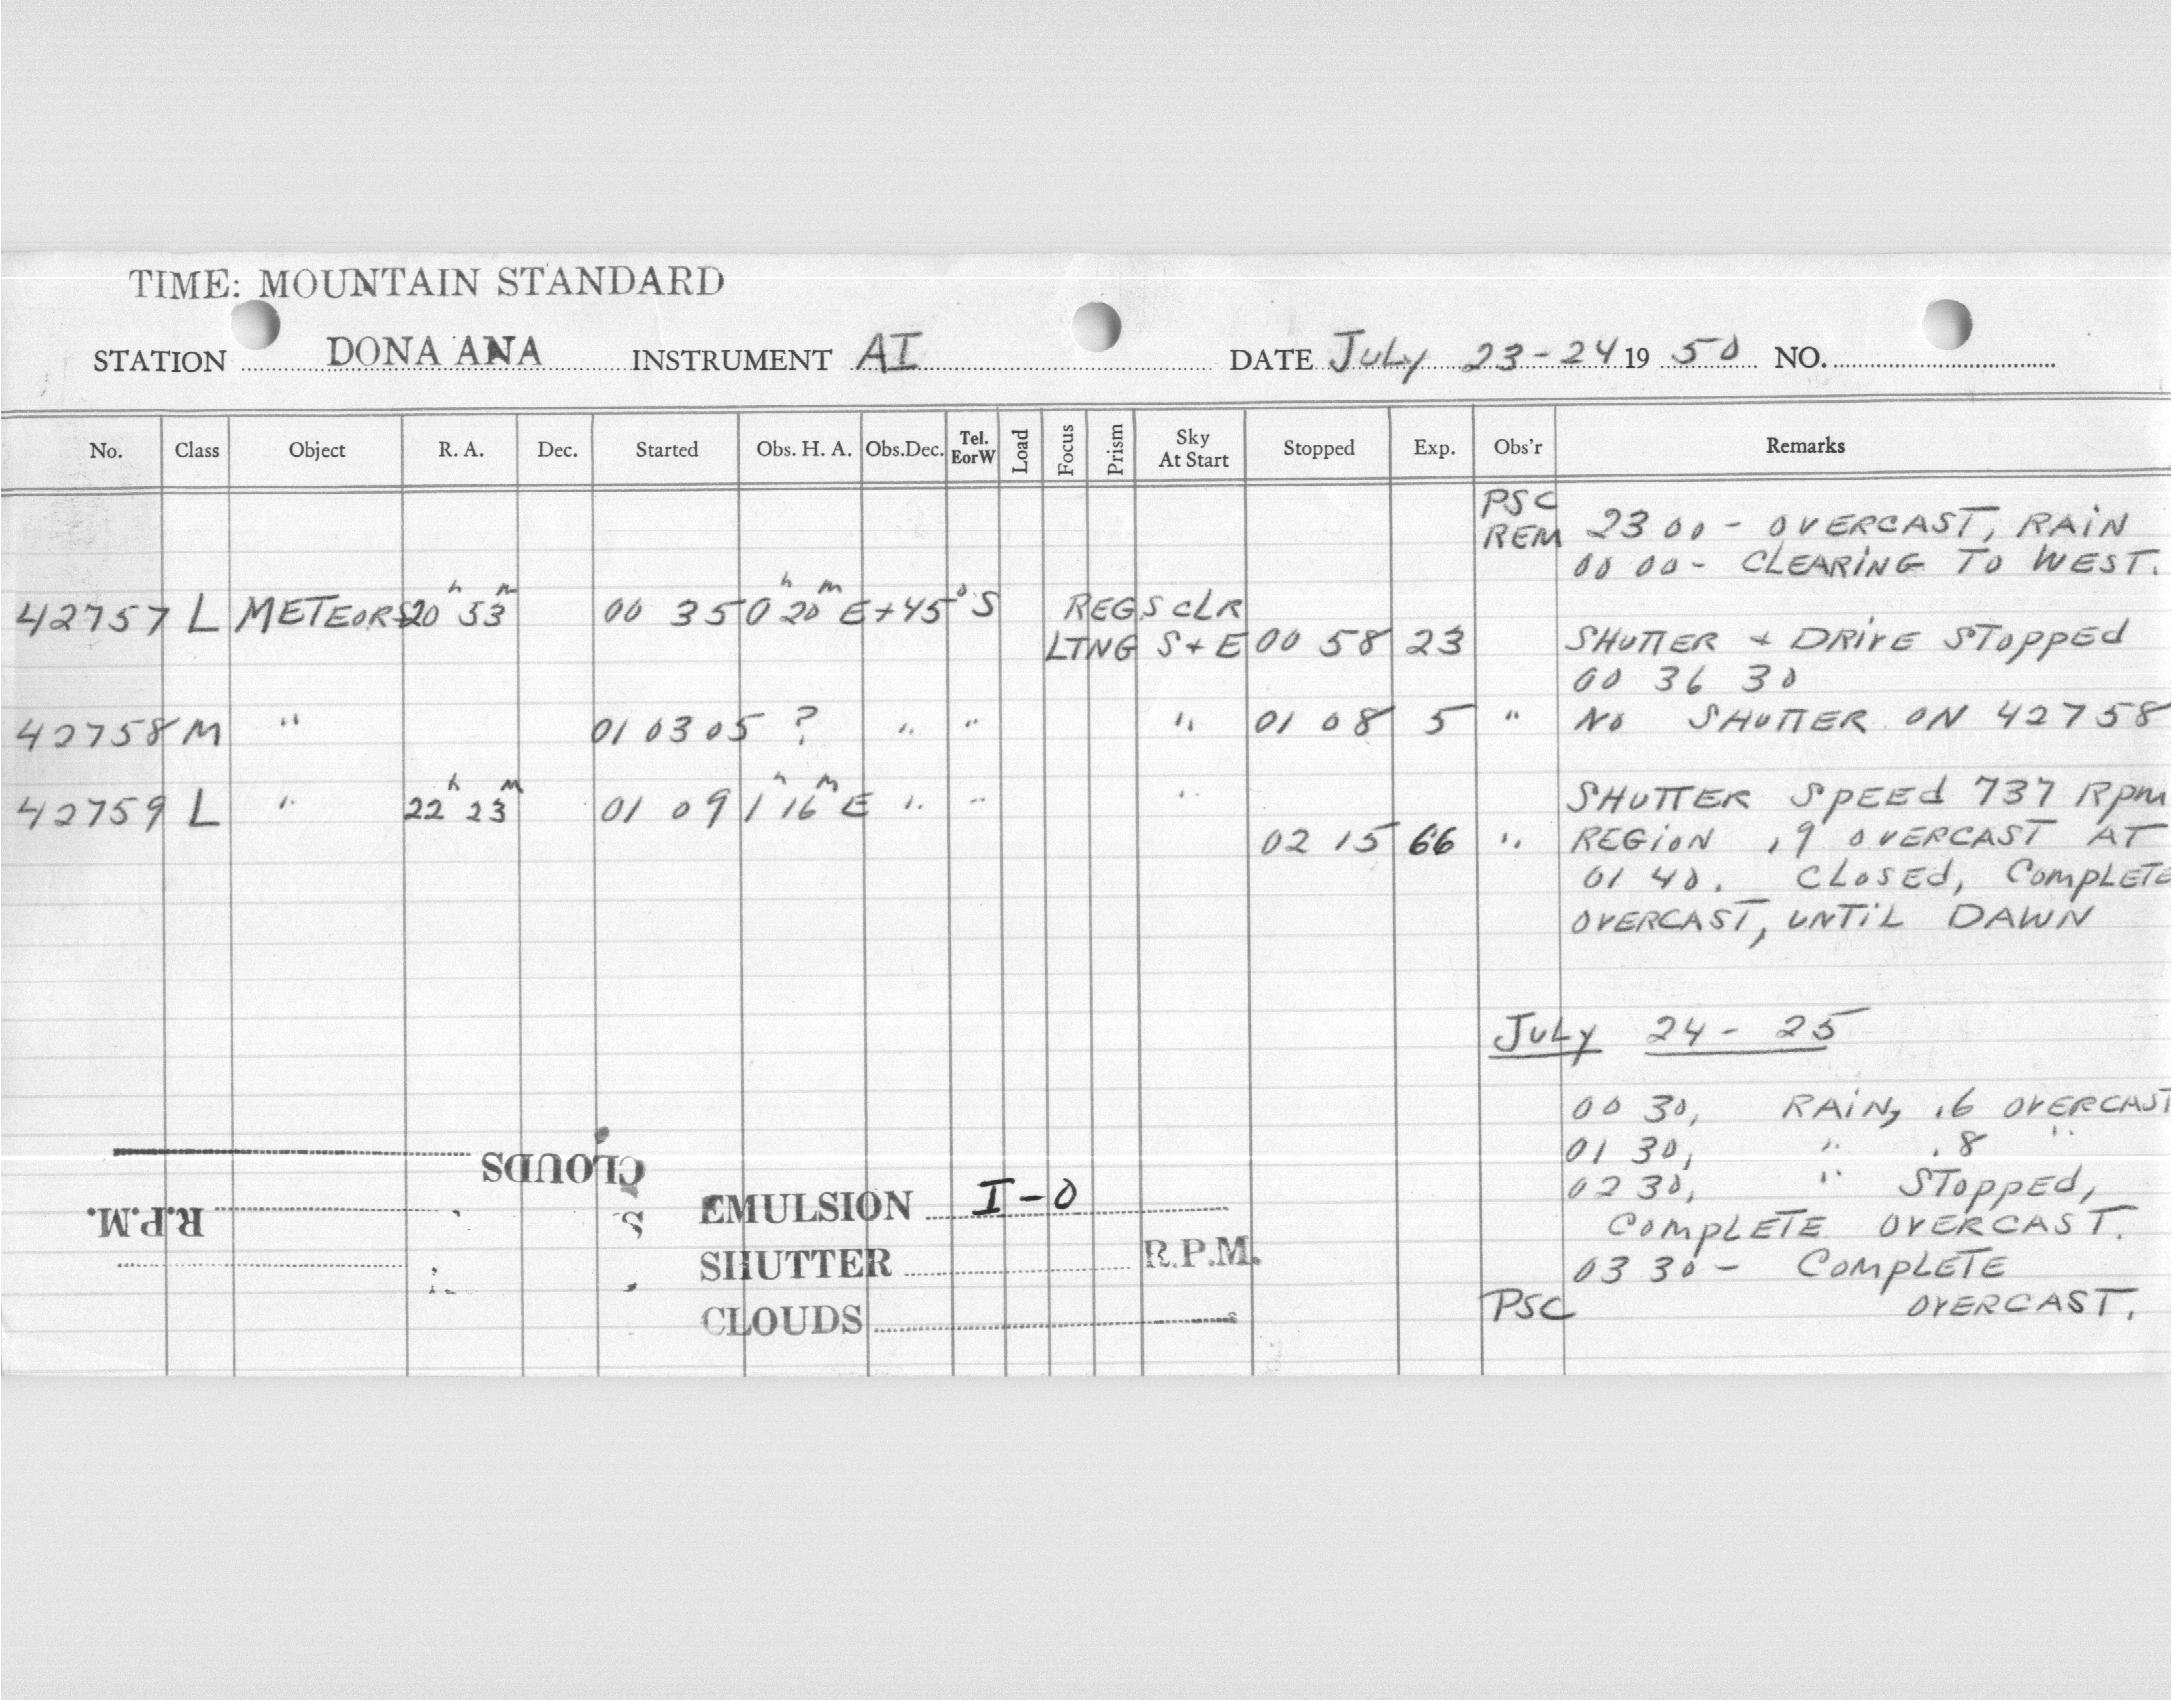 TIME: MOUNTAIN STANDARD
STATION DONA ANA INSTRUMENT AI DATE July 23-24 1950 NO.
No. Class Object R. A. Dec. Started Obs. H. A. Obs.Dec. Tel. EorW Load Focus Prism Sky At Start Stopped Exp. Obs'r Remarks
PSC
REM 23 00 - OVERCAST, RAIN
00 00 - CLEARING TO WEST.
42757 L METEORS 20h 53m 00 35 0h 20m E +45° S REGS CLR
LTNG S + E 00 58 23 SHUTTER + DRIVE STOPPED
00 36 30
42758 M " 01 03 05 ? " " " 01 08 5 " NO SHUTTER ON 42758
42759 L " 22h 23m 01 09 1h 16m E " " " SHUTTER SPEED 737 RPM
02 15 66 " REGION .9 OVERCAST AT
01 40. CLOSED, COMPLETE
OVERCAST, UNTIL DAWN
July 24 - 25
00 30, RAIN, .6 OVERCAST
01 30, " .8 "
02 30, " STOPPED,
COMPLETE OVERCAST.
03 30 - COMPLETE
PSC OVERCAST.
CLOUDS
R.P.M.
EMULSION I-0
SHUTTER R.P.M.
CLOUDS